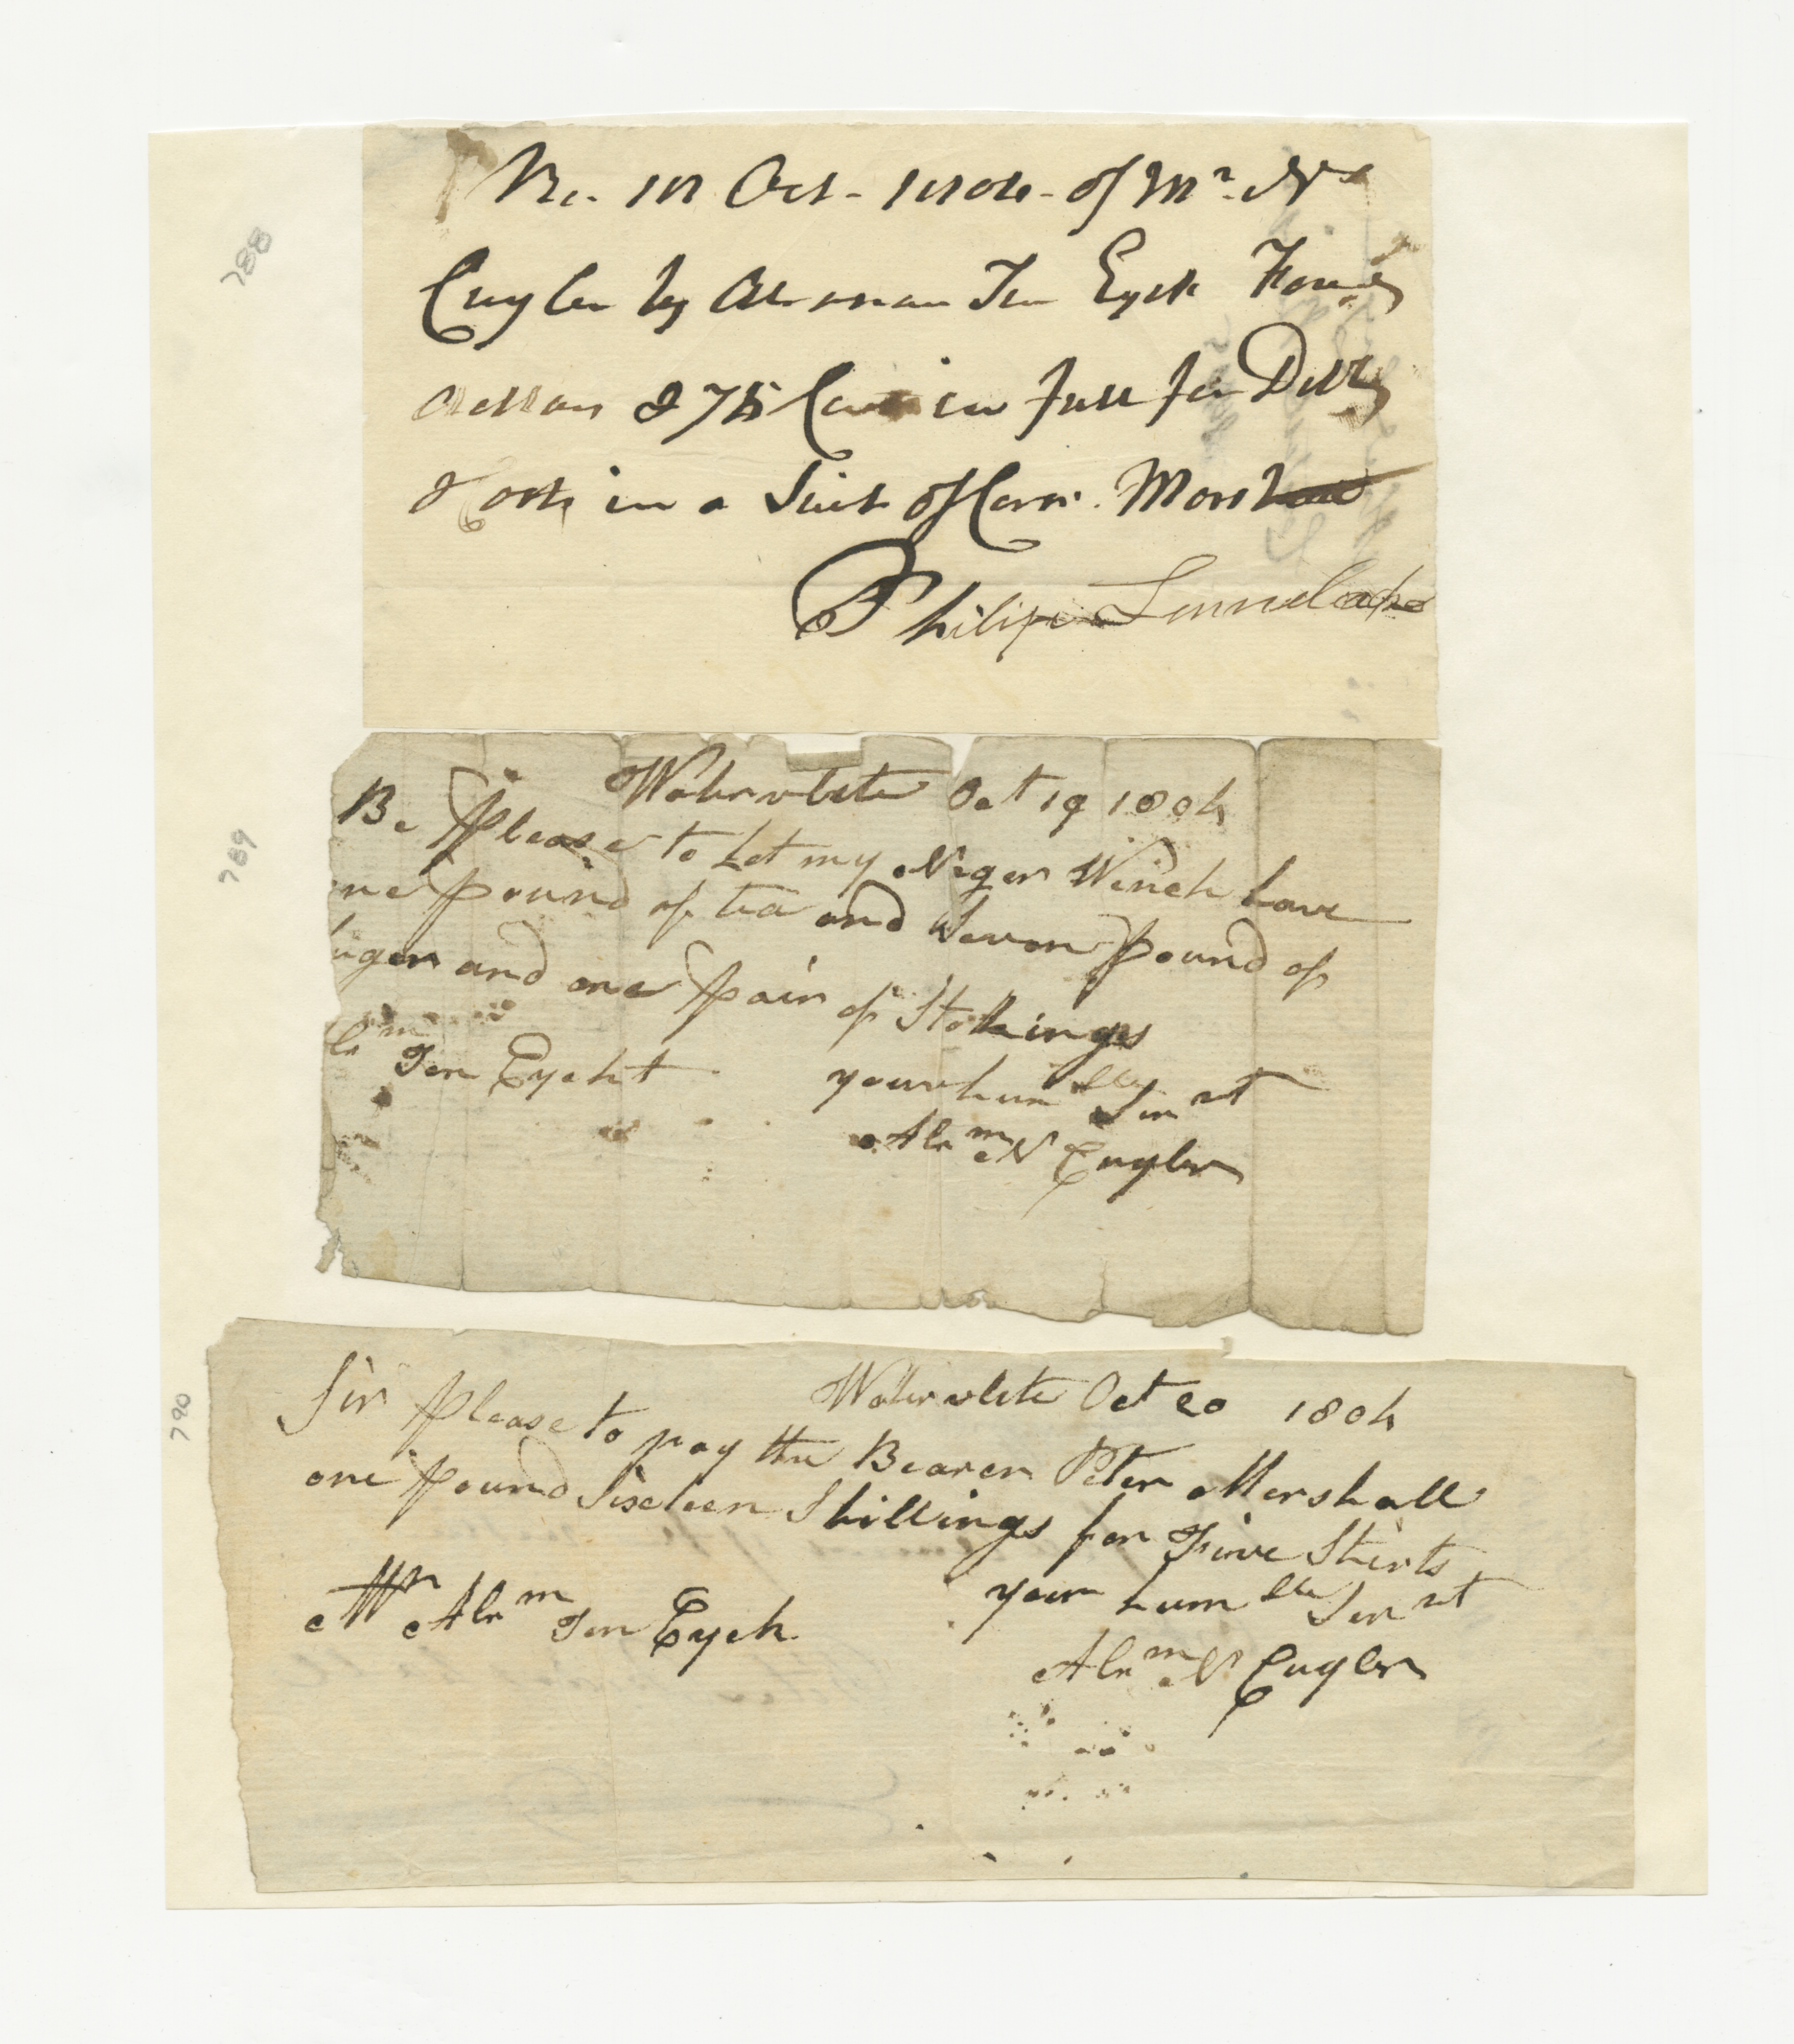 788
Re. 18 Oct - 1804 - of Mr. Ns
Cuyler by Abraham Ten Eyck Four
Dollars & 75 Cents in full for Debt
& Costs in a Suit of Corn.
Philip
789
Watervlete Oct 19 1804
Be Please to Let my Niger Winch have
ne pound of tea and Seven pound of
uger and one pair of Stokings
br m Ten Eycht your hum ble Ser nt
Abr m N Cuyler
790
Watervlete Oct 20 1804
Sir Please to pay the Bearer Peter Mershall
one pound Sixteen Shillings for Five Shirts
Mr Abr m Ten Eyck your hum ble Ser nt
Abr m N Cuyler